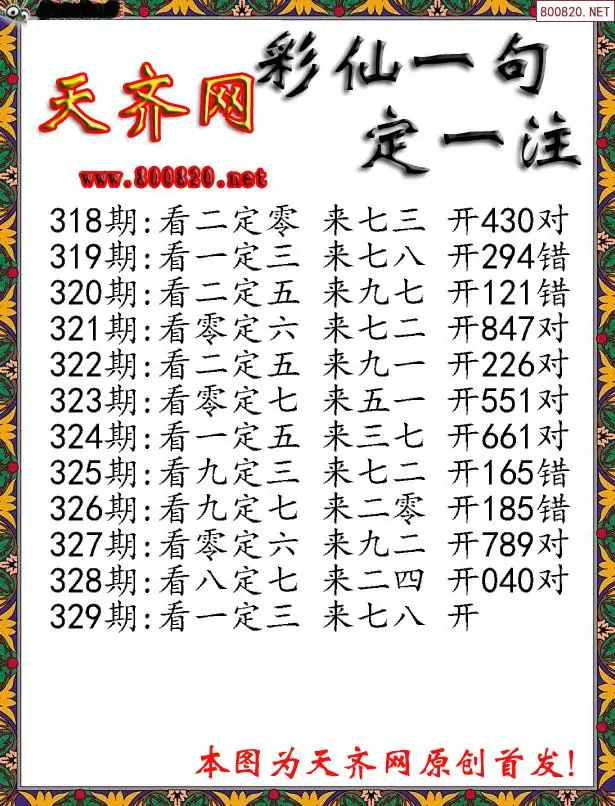 800820.NET
彩仙一句
天齐网
定一注
www.800820.net
318期:看二定零 来七三 开430对
319期:看一定三 来七八 开294错
320期:看二定五 来九七 开121错
321期:看零定六 来七二 开847对
322期:看二定五 来九一 开226对
323期:看零定七 来五一 开551对
324期:看一定五 来三七 开661对
325期:看九定三 来七二 开165错
326期:看九定七 来二零 开185错
327期:看零定六 来九二 开789对
328期:看八定七 来二四 开040对
329期:看一定三 来七八 开
本图为天齐网原创首发!